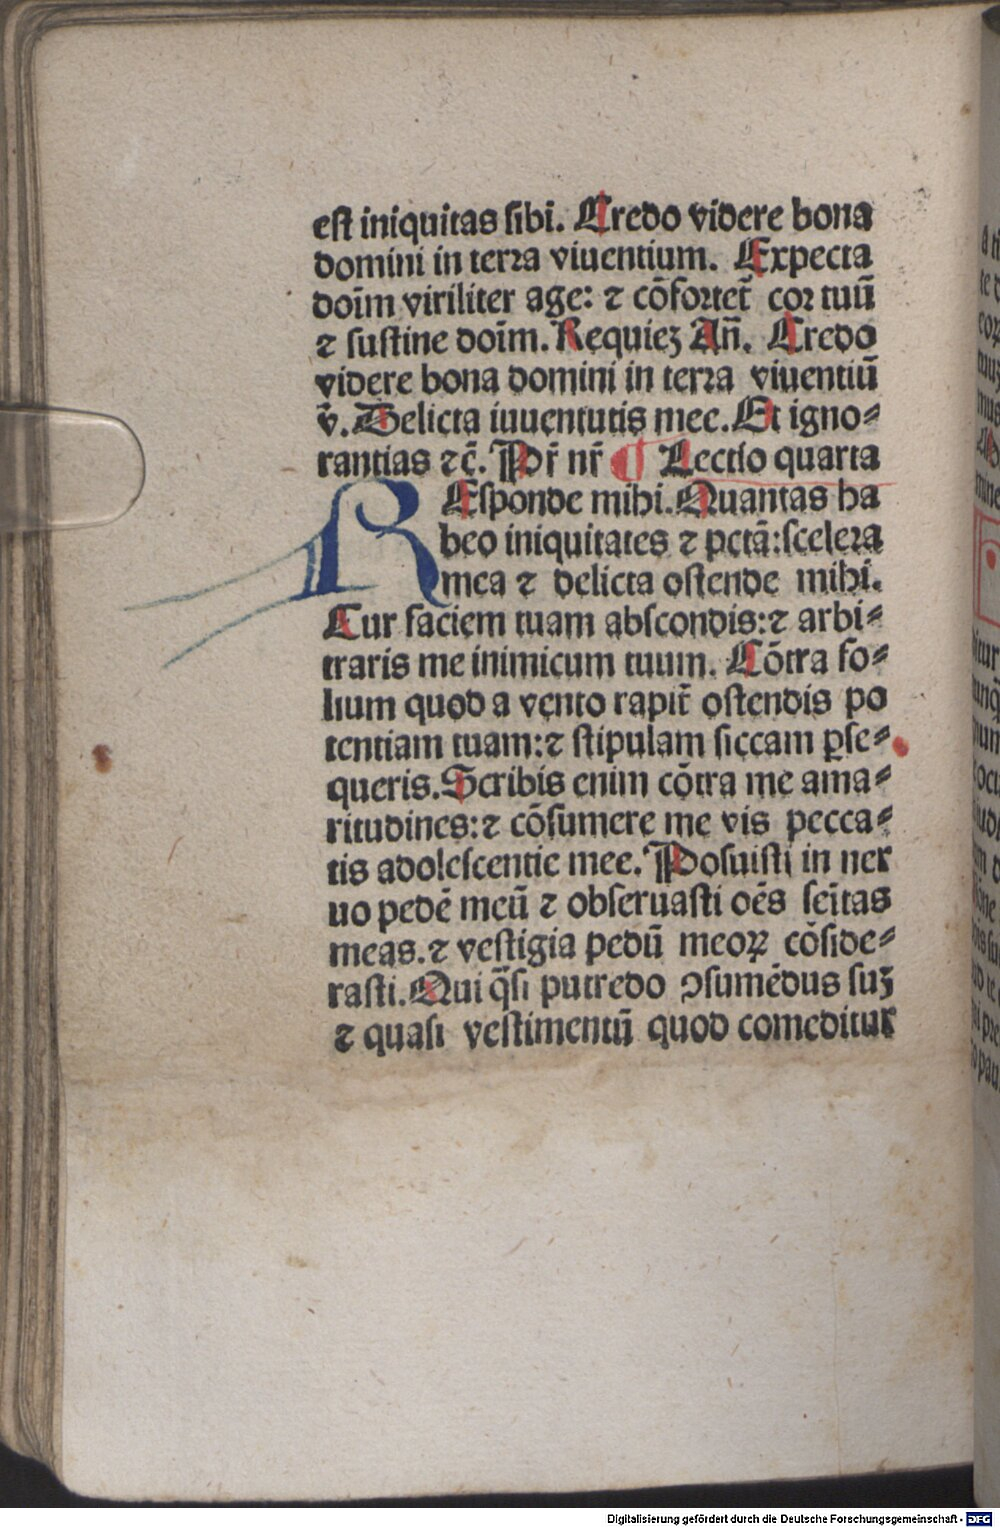 est iniquitas sibi. Credo videre bona
domini in terra viuentium. Expecta
doīm viriliter age: ⁊ cōfortet̄ cor tuū
⁊ sustine doīm. Requieʒ Añ. Credo
videre bona domini in terra viuentiū
v̄. Delicta iuuentutis mee. Et igno⸗
rantias ⁊c̄. Pr̄ nr̄ ¶ Lectio quarta
REsponde mihi. Quantas ha
beo iniquitates ⁊ pctā: scelera
mea ⁊ delicta ostende mihi.
Cur faciem tuam abscondis: ⁊ arbi⸗
traris me inimicum tuum. Cōtra fo⸗
lium quod a vento rapit̄ ostendis po
tentiam tuam: ⁊ stipulam siccam ꝑse⸗
queris. Scribis enim cōtra me ama⸗
ritudines: ⁊ cōsumere me vis pecca⸗
tis adolescentie mee. Posuisti in ner
uo pedē meū ⁊ obseruasti oēs sēitas
meas. ⁊ vestigia pedū meoꝝ cōside⸗
rasti. Qui q̄si putredo ↄsumēdus suʒ
⁊ quasi vestimentū quod comeditur
Digitalisierung gefördert durch die Deutsche Forschungsgemeinschaft - DFG